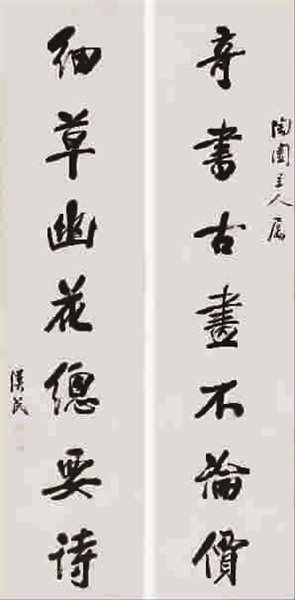 陶園主人屬
奇書古畫不論價
細草幽花總要詩
漢民